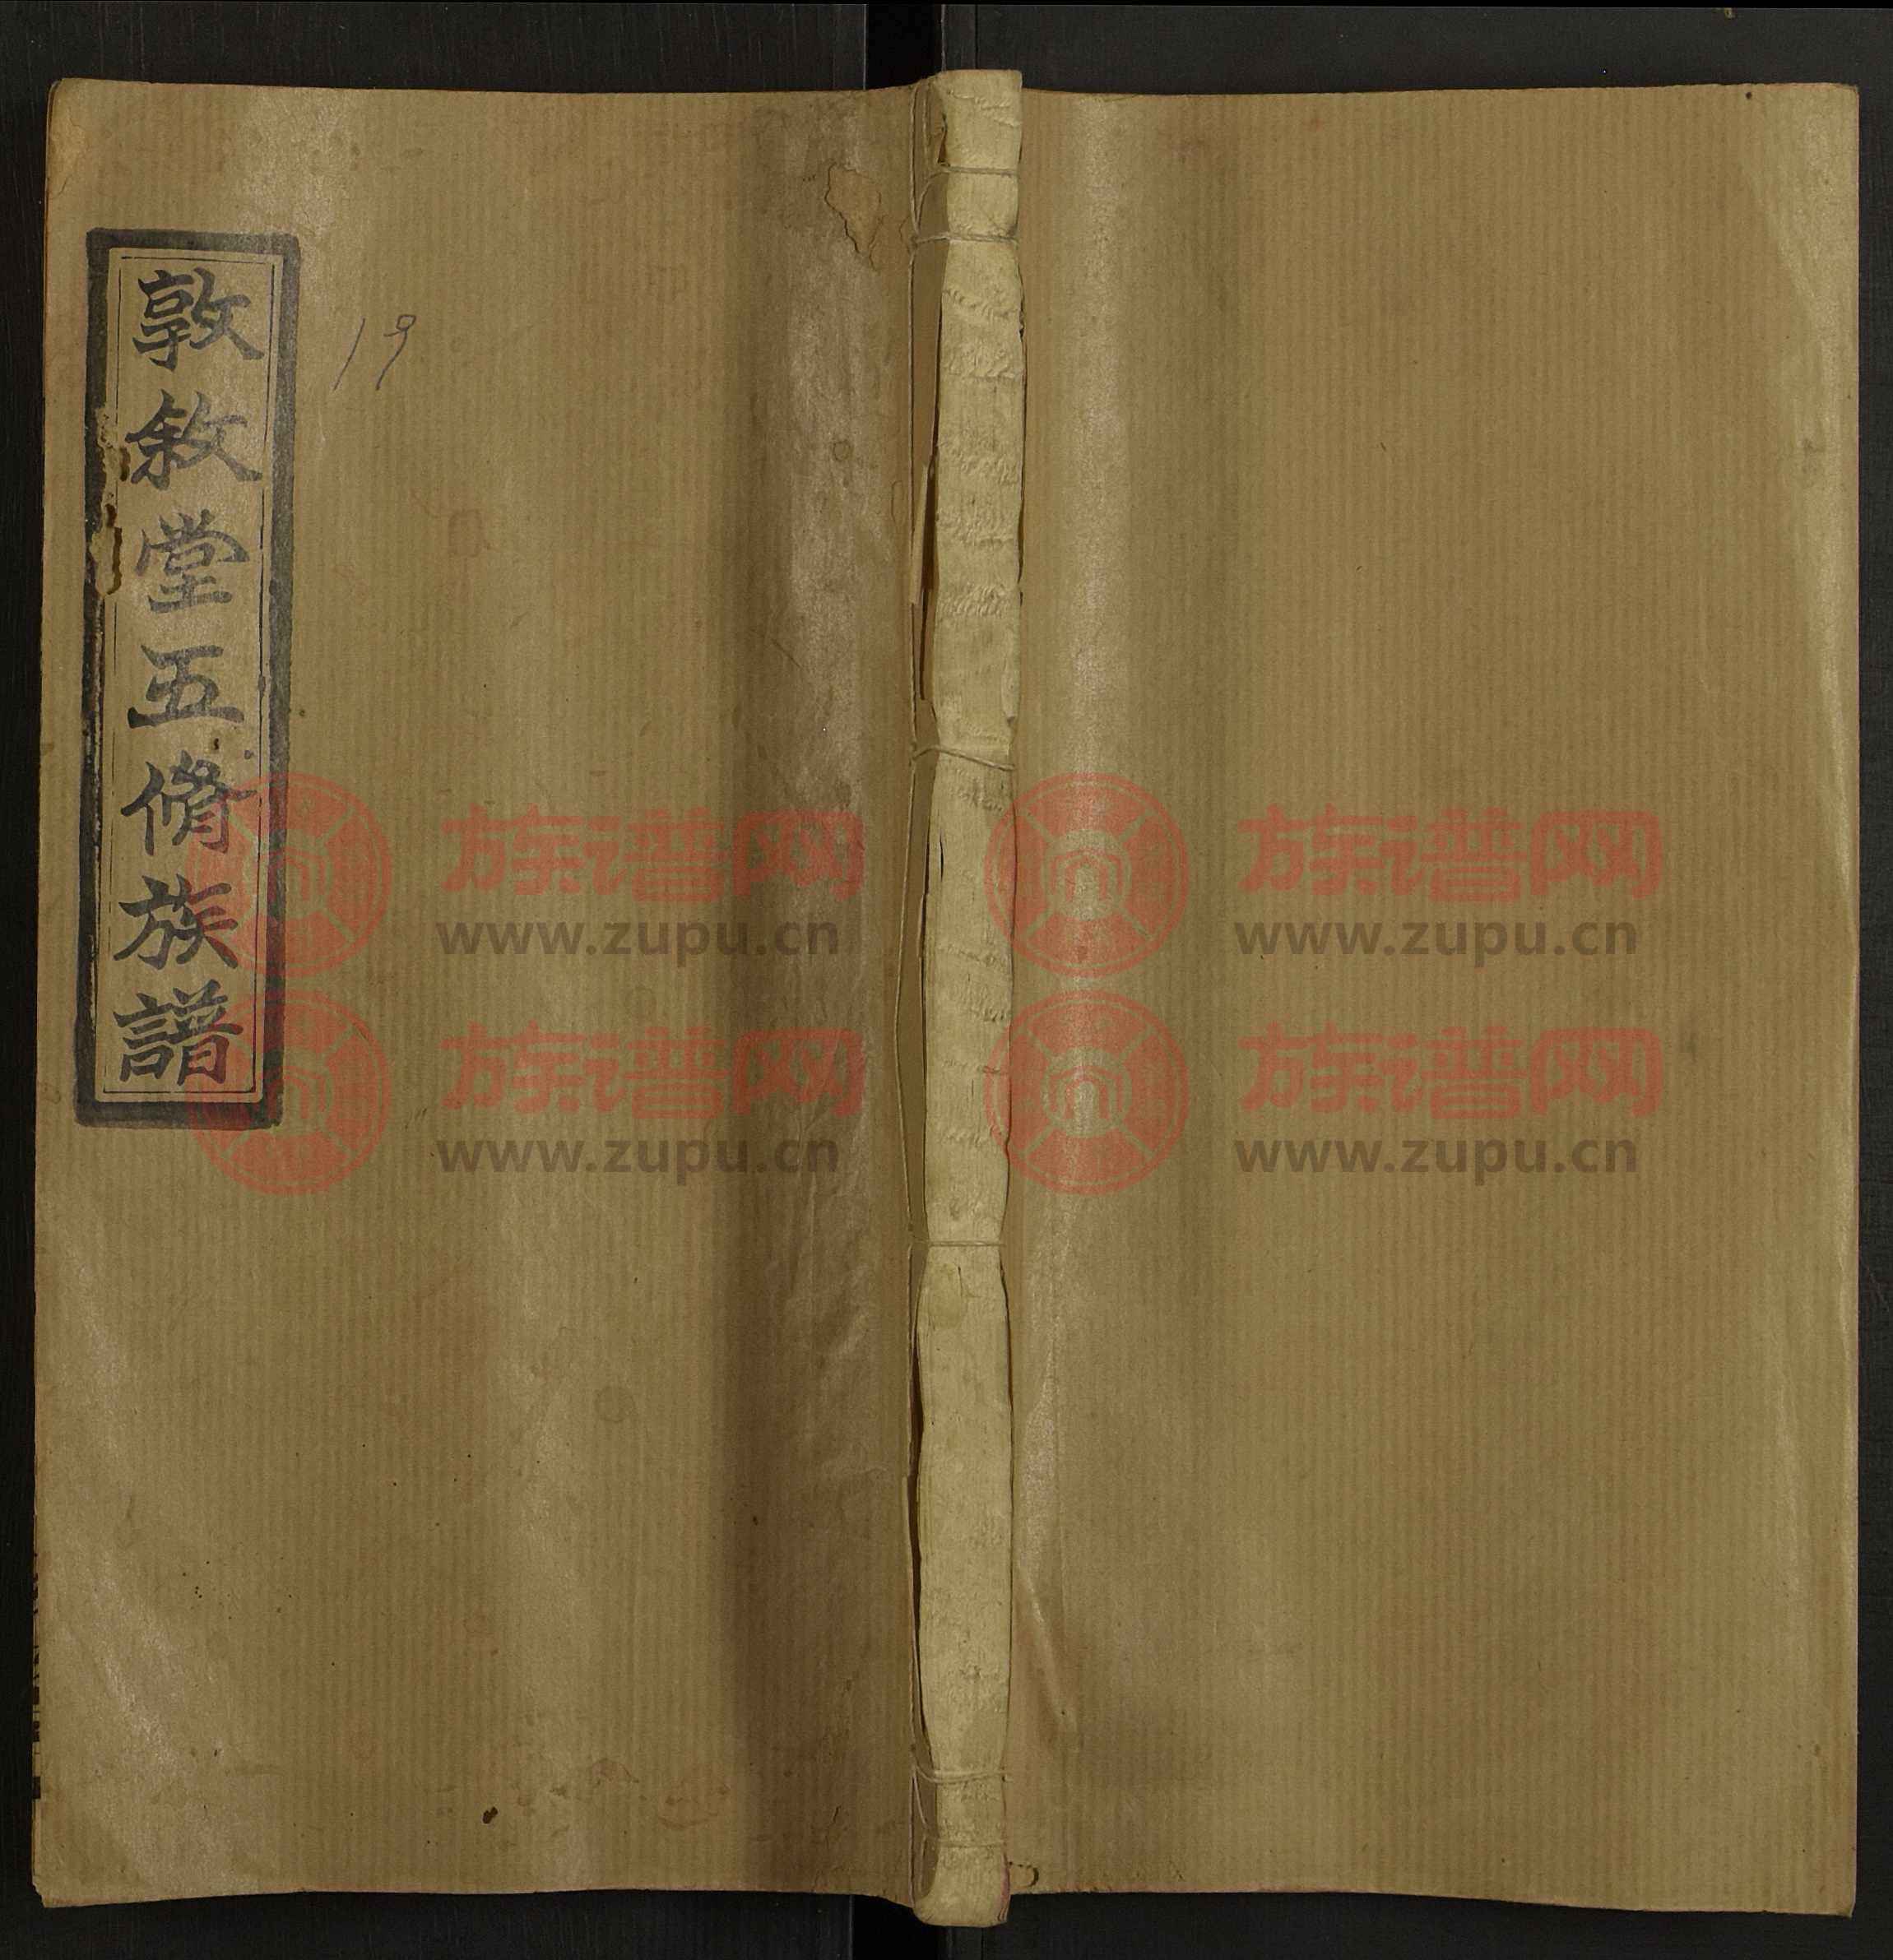 敦敘堂五脩族譜
19
族谱网
www.zupu.cn
族谱网
www.zupu.cn
族谱网
www.zupu.cn
族谱网
www.zupu.cn